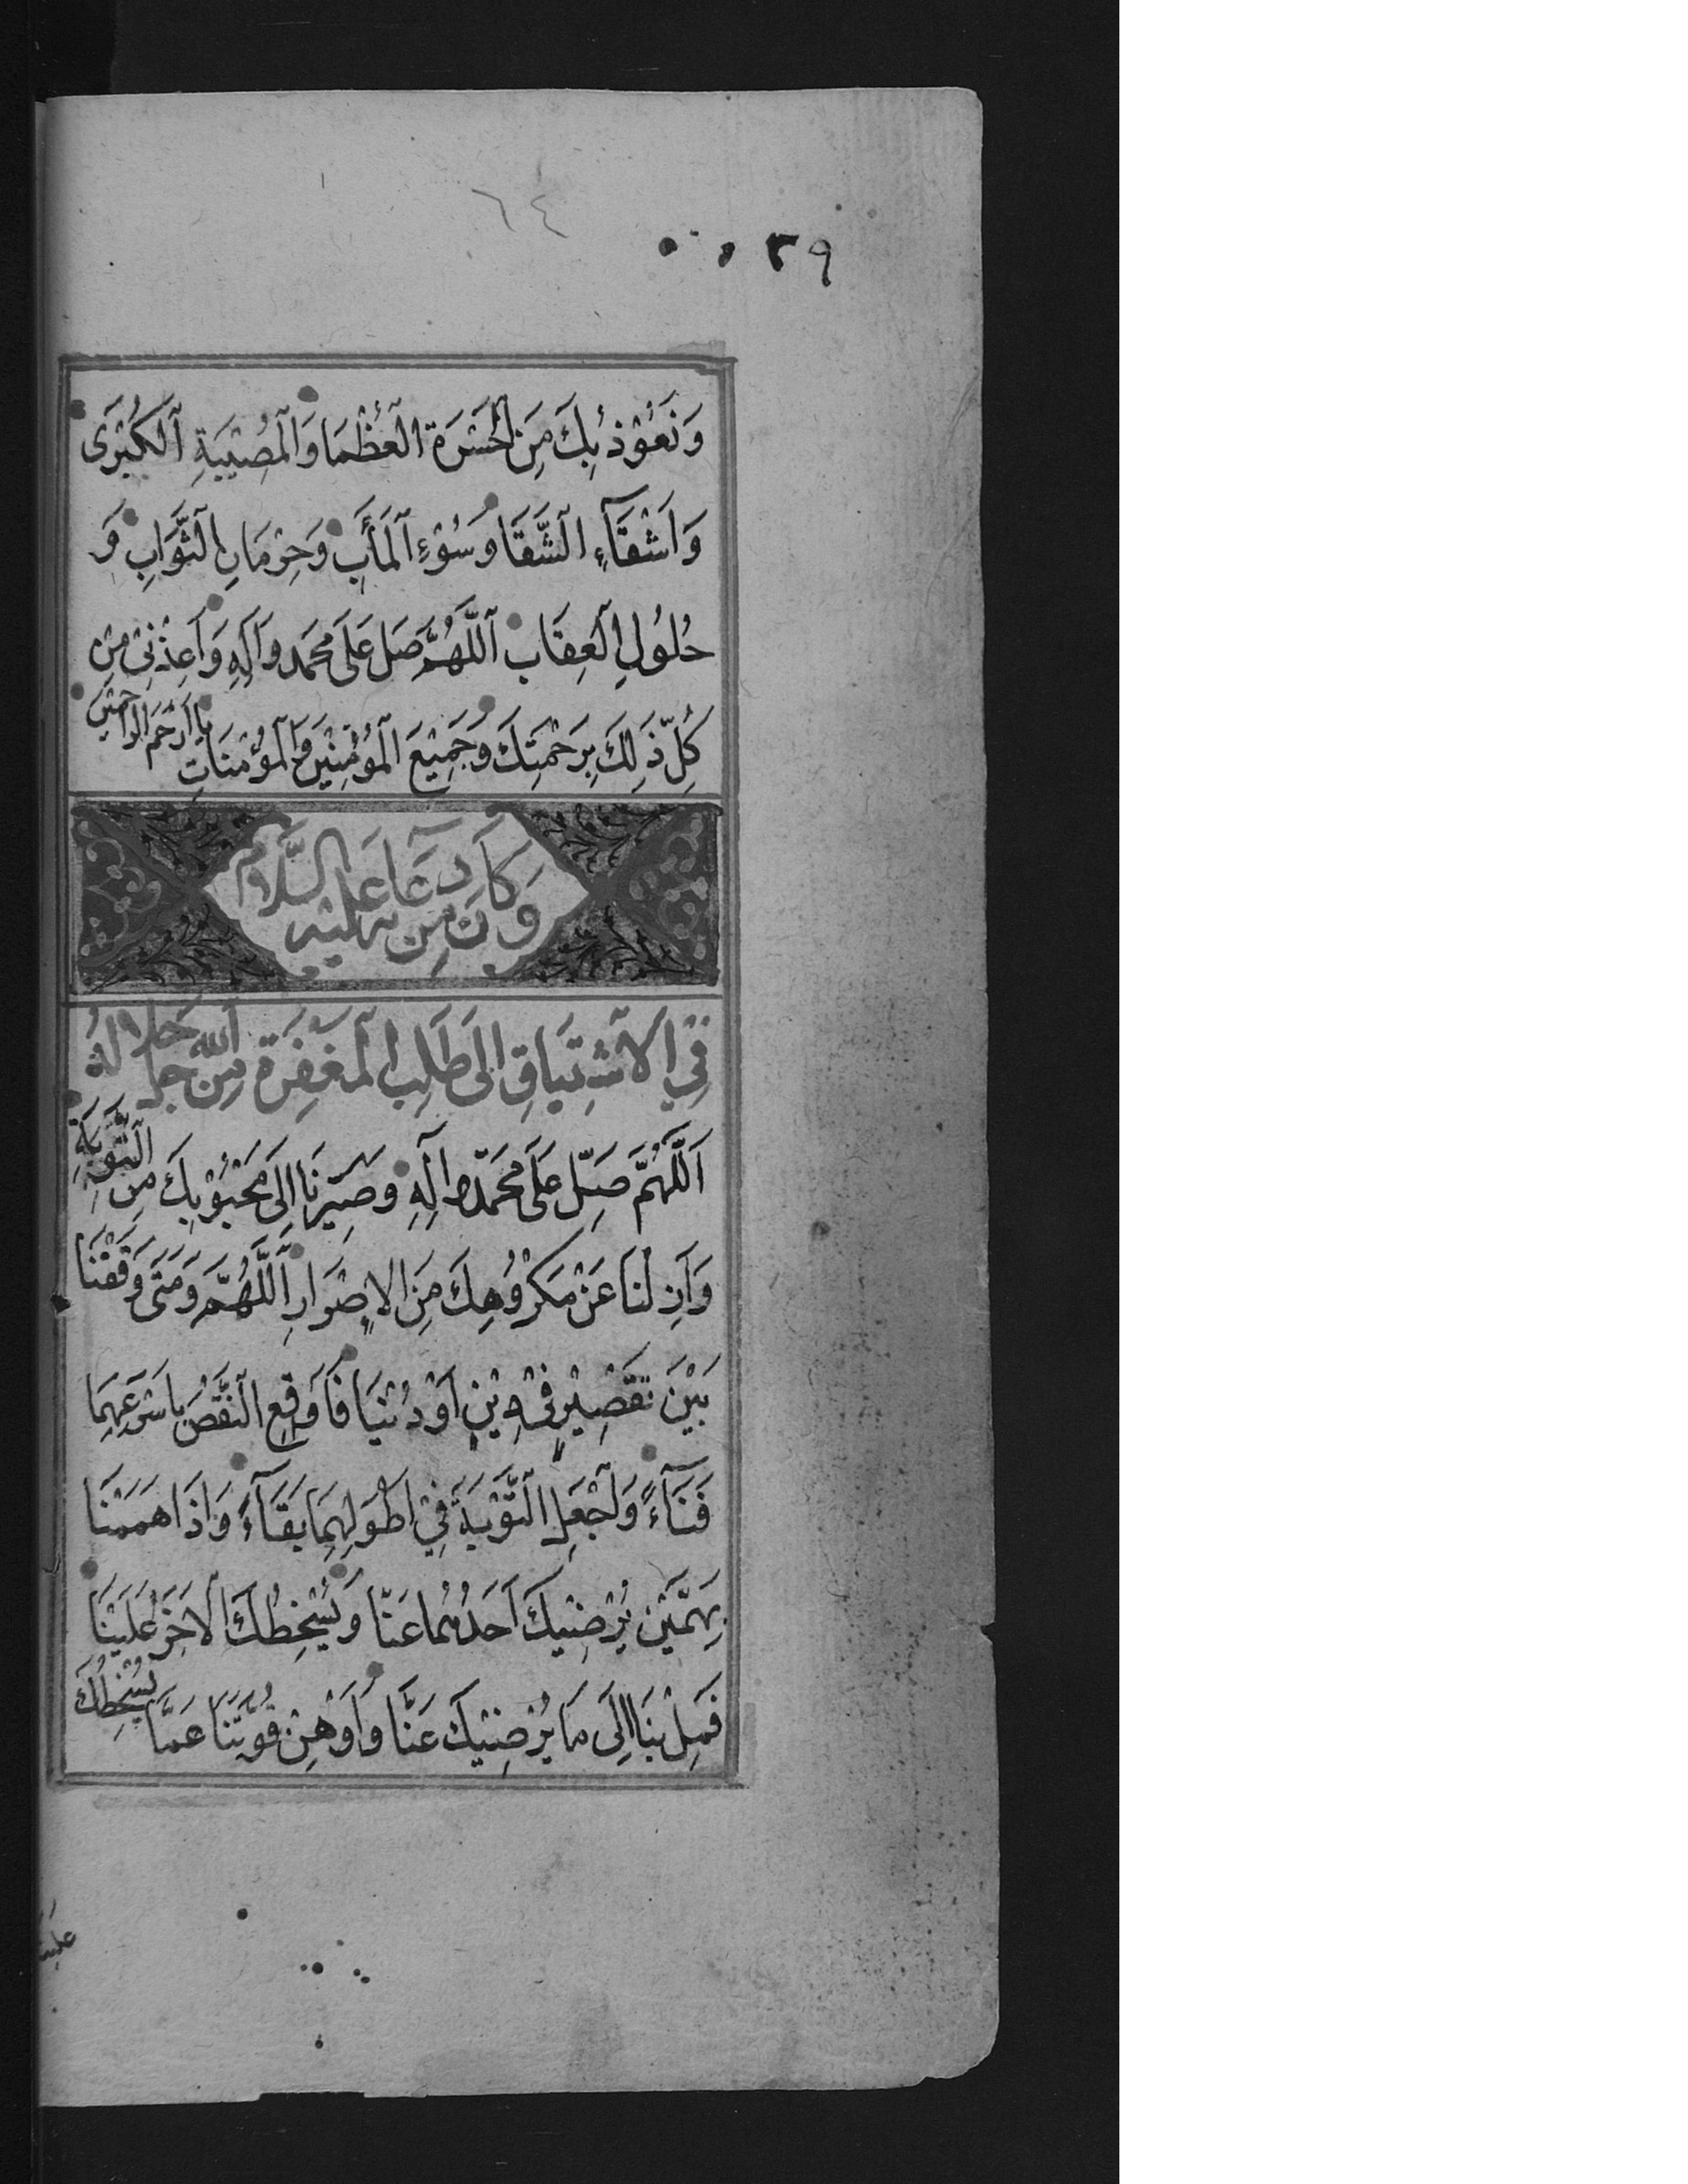 ٦٤
٣٩
وَنَعُوْذُ بِكَ مِنَ الْحَسْرَةِ الْعُظْمَا وَالْمُصِيْبَةِ الْكُبْرَى
وَاَشْقَآءِ الشَّقَا وَسُوْءِ الْمَأَبِ وَحِرْمَانِ الثَّوَابِ وَ
حُلُوْلِ الْعِقَابِ اَللَّهُمَّ صَلِ عَلَى مُحَمَد وَاَلِهِ وَاَعِذْنِىْ مِنْ
كُلِّ ذَلِكَ بِرَحْمَتِكَ وَجَمِيْعَ الْمُوْمِنِيْنَ وَالْمُؤْمِنَاتِ يَا اَرْحَمَ الرَّاحِمِيْنَ
وَكَانَ مِنْ دُعَائِهِ عَلَيْهِ السَّلَامُ
فِي الْاشْتِيَاقِ اِلَى طَلَبِ الْمَغْفِرَةِ مِنَ اللّٰهِ جَلَّ جَلَالُهُ
اَللَّهُمَّ صَلِّ عَلَى مُحَمَّد وَاَلِهِ وَصَيِّرْنَا اِلَى مَحْبُوْبِكَ مِنَ التَّوْبَةِ
وَاَزِلْنَا عَنْ مَكْرُوْهِكَ مِنَ الْاِصْرَارِ اَللَّهُمَّ وَمَتَى وَقَفْنَا
بَيْنَ نَقْصَيْنِ فِىْ دِيْنٍ اَوْ دُنْيَا فَاَوْقِعِ النَّقْصَ بِاَسْرَعِهِمَا
فَنَآءً وَاجْعَلِ التَّوْبَةَ فِيْ اَطْوَلِهِمَا بَقَآءً وَاِذَا هَمَمْنَا
بِهَمَّيْنِ يُرْضِيْكَ اَحَدُهُمَا عَنَّا وَيُسْخِطُكَ الْاَخَرُ عَلَيْنَا
فَمِلْ بِنَا اِلَى مَا يُرْضِيْكَ عَنَّا وَاَوْهِنْ قُوَّتَنَا عَمَّا يُسْخِطُكَ